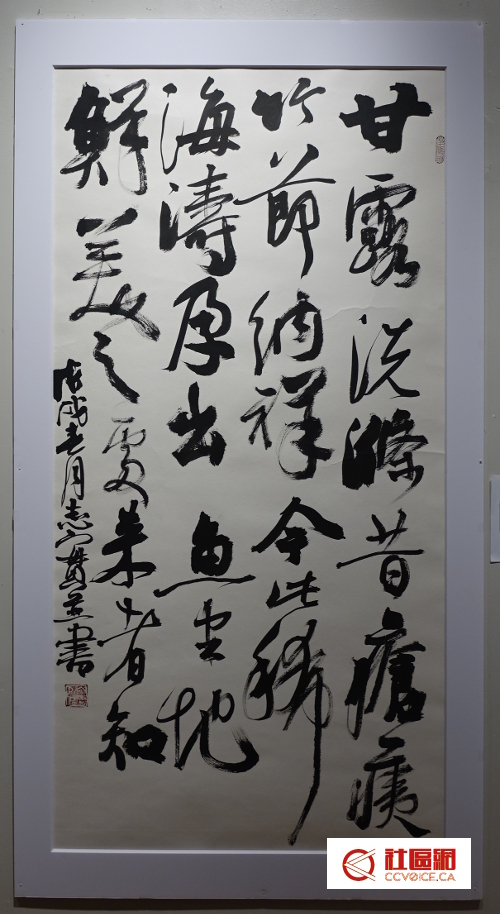 甘露洗滌昔瘡痍
竹節納祥今此稀
海濤孕出鱼地
鮮美之處来者知
戊戌月志書
社區網
CCVOICE.CA